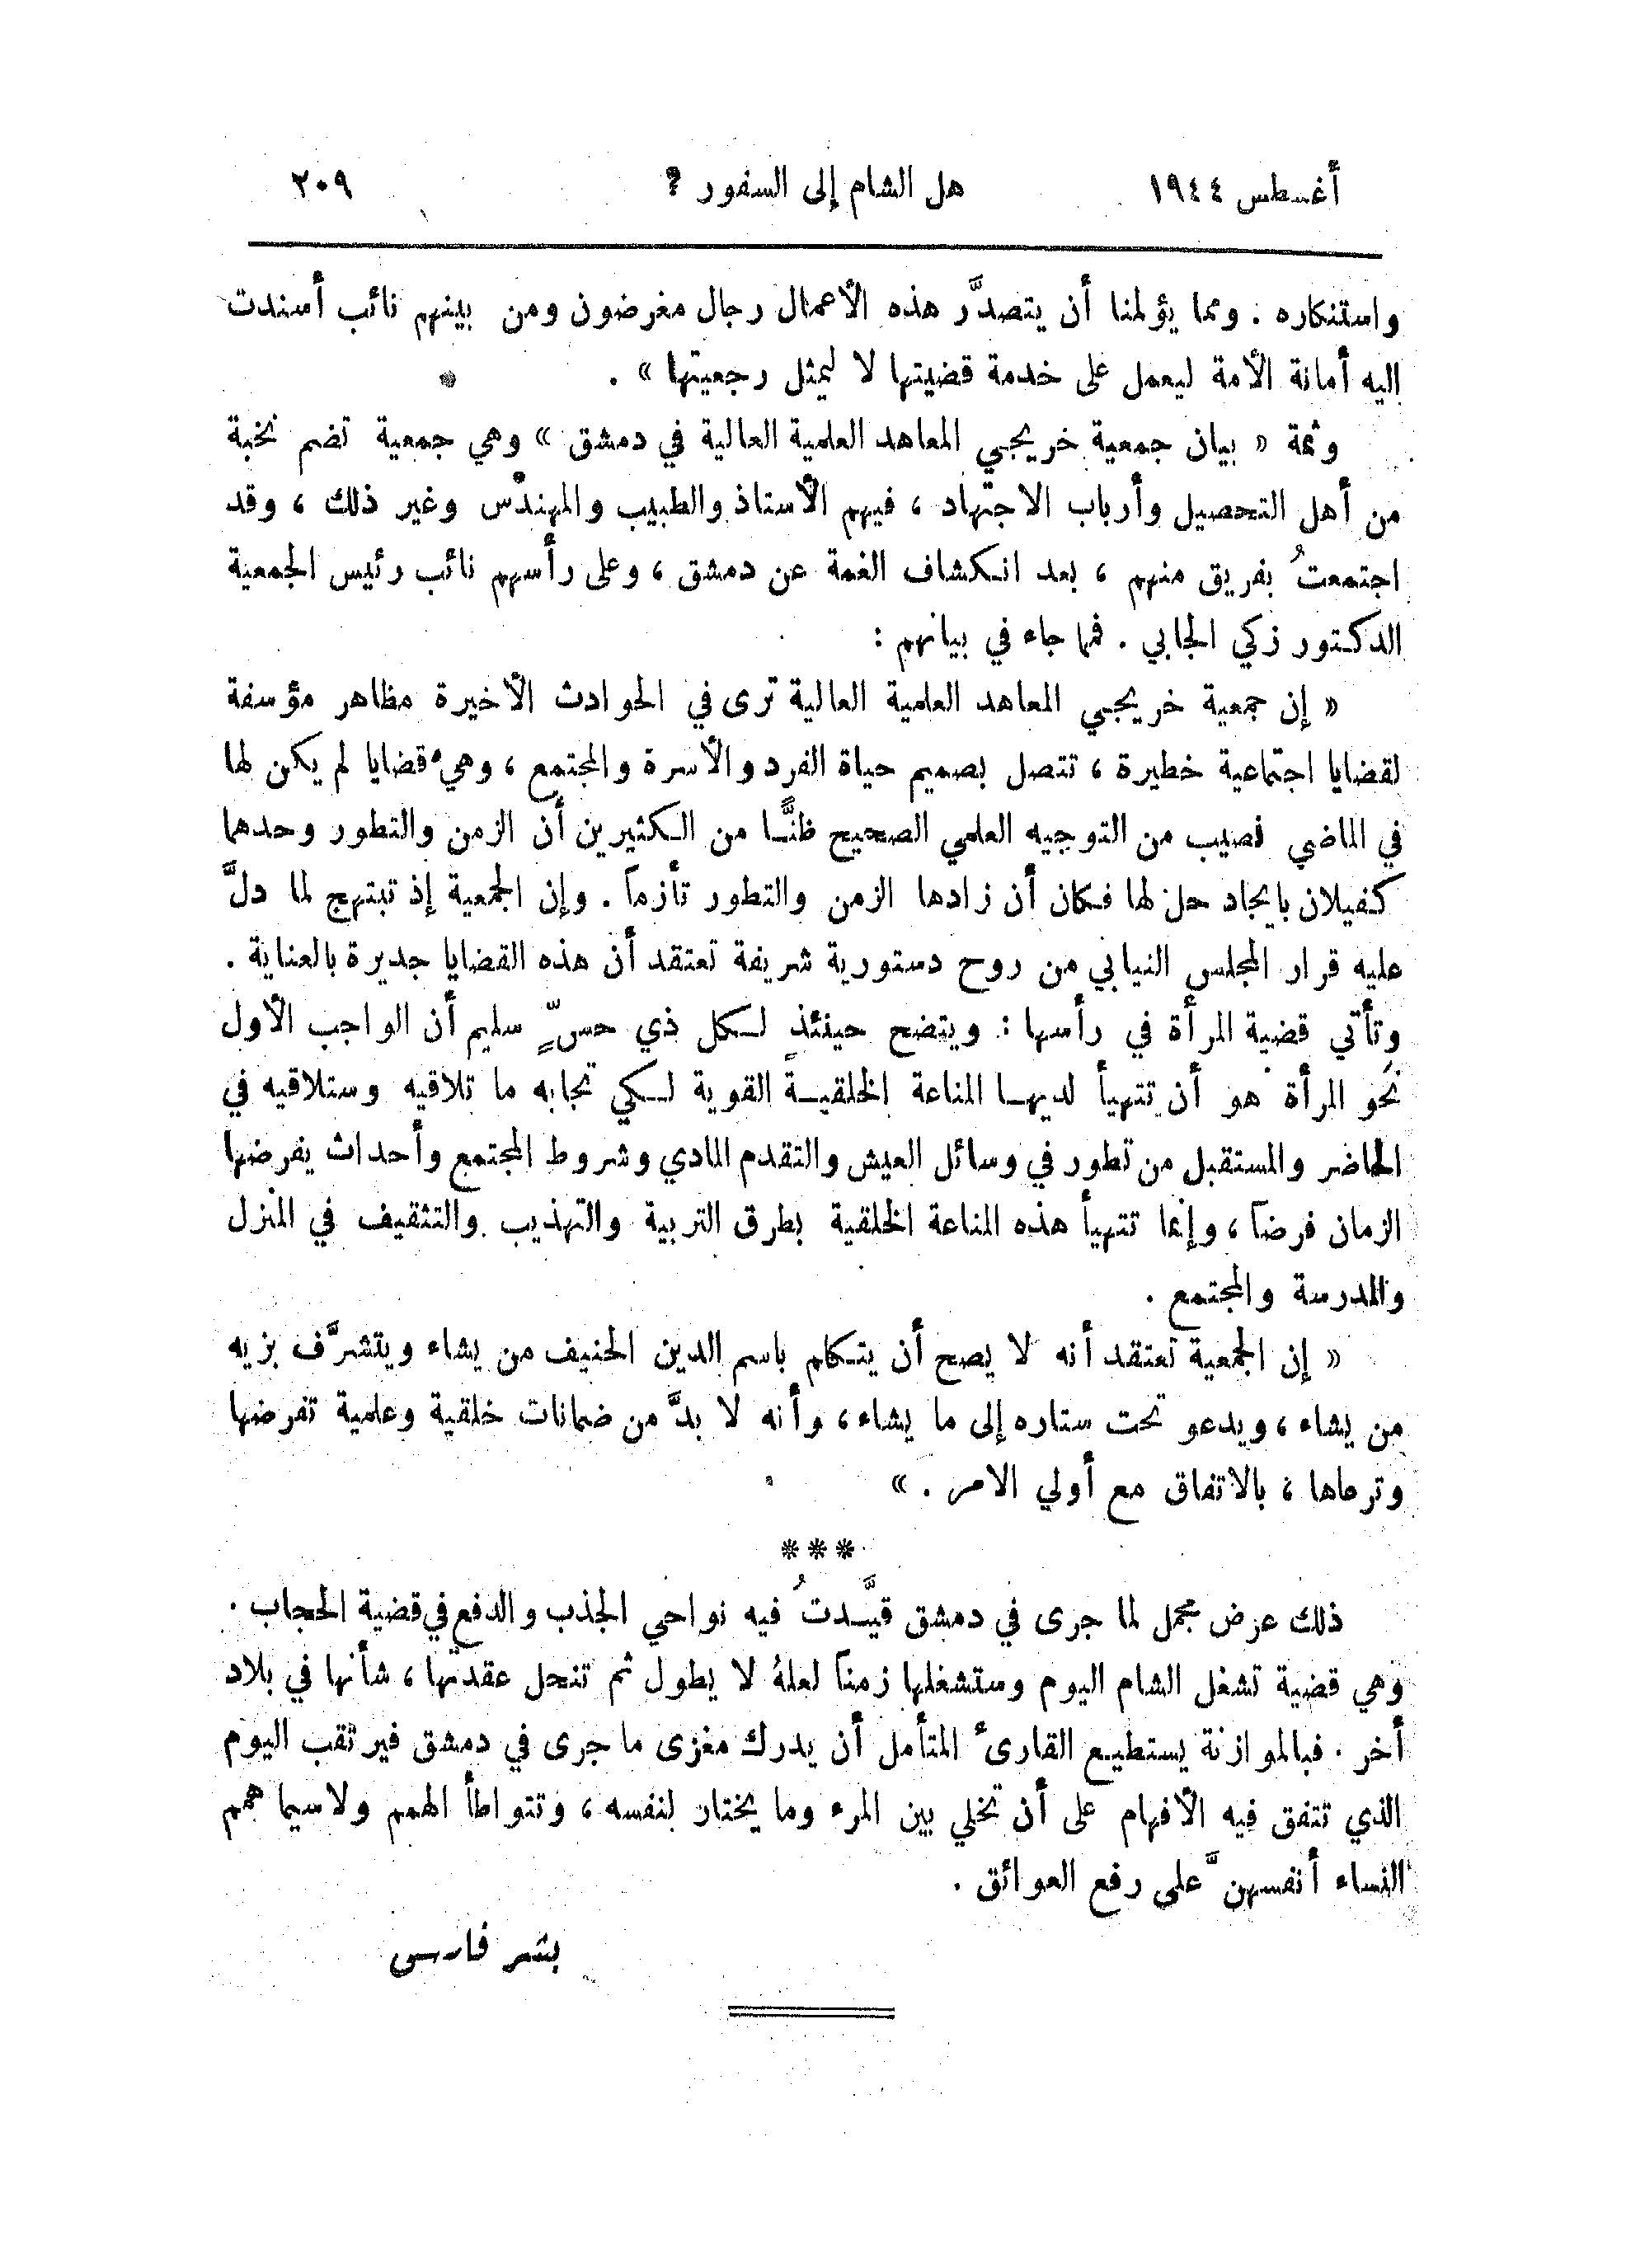 أغسطس ١٩٤٤ هل الشام إلى السفور ؟ ٢٠٩
واستنكاره . ومما يؤلمنا أن يتصدَّر هذه الأعمال رجال مغرضون ومن بينهم نائب أسندت
اليه أمانة الأمة ليعمل على خدمة قضيتها لا ليمثل رجعيتها » .
وثمة « بيان جمعية خريجي المعاهد العلمية العالية في دمشق » وهي جمعية تضم نخبة
من أهل التحصيل وأرباب الاجتهاد ، فيهم الأستاذ والطبيب والمهندس وغير ذلك ، وقد
اجتمعتُ بفريق منهم ، بعد انكشاف الغمة عن دمشق ، وعلى رأسهم نائب رئيس الجمعية
الدكتور زكي الجابي . فما جاء في بيانهم :
« إن جمعية خريجي المعاهد العلمية العالية ترى في الحوادث الأخيرة مظاهر مؤسفة
لقضايا اجتماعية خطيرة ، تتصل بصميم حياة الفرد والأسرة والمجتمع ، وهي قضايا لم يكن لها
في الماضي نصيب من التوجيه العلمي الصحيح ظنًّا من الكثيرين أن الزمن والتطور وحدهما
كفيلان بايجاد حل لها فكان أن زادها الزمن والتطور تأزماً . وإن الجمعية إذ تبتهج لما دلَّ
عليه قرار المجلس النيابي من روح دستورية شريفة تعتقد أن هذه القضايا جديرة بالعناية .
وتأتي قضية المرأة في رأسها : ويتضح حينئذٍ لكل ذي حسٍّ سليم أن الواجب الأول
نحو المرأة هو أن تتهيأ لديها المناعة الخلقية القوية لكي تجابه ما تلاقيه وستلاقيه في
الحاضر والمستقبل من تطور في وسائل العيش والتقدم المادي وشروط المجتمع وأحداث يفرضها
الزمان فرضاً ، وإنما تتهيأ هذه المناعة الخلقية بطرق التربية والتهذيب والتثقيف في المنزل
والمدرسة والمجتمع .
« إن الجمعية تعتقد أنه لا يصح أن يتكلم باسم الدين الحنيف من يشاء ويتشرَّف بزيه
من يشاء ، ويدعو تحت ستاره إلى ما يشاء ، وأنه لا بدَّ من ضمانات خلقية وعلمية تفرضها
وترعاها ، بالاتفاق مع أولي الامر . »
***
ذلك عرض مجمل لما جرى في دمشق قيَّدتُ فيه نواحي الجذب والدفع في قضية الحجاب .
وهي قضية تشغل الشام اليوم وستشغلها زمناً لعلهُ لا يطول ثم تنحل عقدتها ، شأنها في بلاد
أخر . فبالموازنة يستطيع القارئ المتأمل أن يدرك مغزى ما جرى في دمشق فيرتقب اليوم
الذي تتفق فيه الأفهام على أن تخلي بين المرء وما يختار لنفسه ، وتتواطأ الهمم ولاسيما همم
النساء أنفسهنَّ على رفع العوائق .
بشر فارس